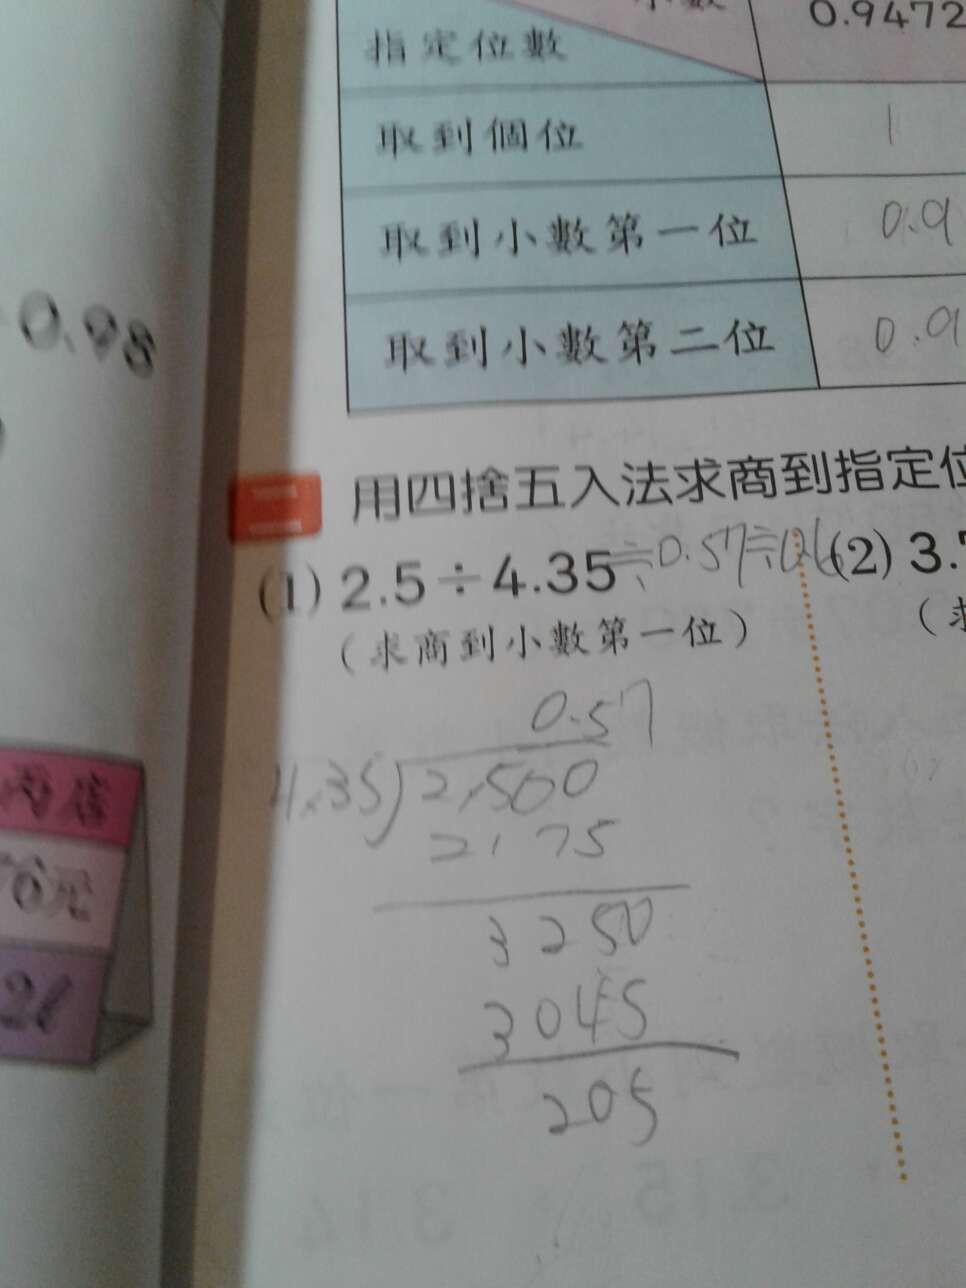 小數
0.9472
指定位數
取到個位 1
取到小數第一位 0.9
取到小數第二位 0.9
0.98
二 用四捨五入法求商到指定位
(1) 2.5÷4.35÷0.57÷0.6 (2) 3.
(求商到小數第一位) (求
0.57
4.35)2.500
2175
3250
3045
205
76元
2ℓ